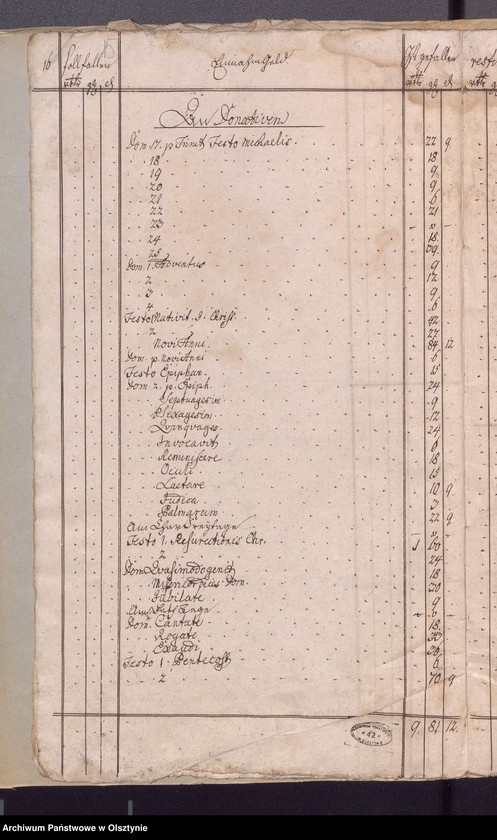 16 Soll fallen Einnahm Geld Ist gefallen rest
rthr gß d rthr gß d rthr
An Donativen
Dom. 17. p. Trinit. Festo Michaelis. 22 9
18 18
19 9
20 9
21 6
22 21
23
24 18
25 39
Dom. 1. Adventus 9
2 12
3 9
4 6
Festo Nativit. D. Christ. 42
2 27
Novi Anni. 84 12
Dom. p. Novi Anni 6
Festo Epiphan. 15
Dom. 2. p. Epiph. 24
Septuagesim. 9
Sexagesim. 12
Quinquages. 24
Invocavit 6
Reminiscere 18
Oculi 15
Laetare 10 9
Judica 3
Palmarum 22 9
Am Char Freytage
Festo 1. Resurectionis Chr. 1 60
2 24
Dom. Quasimodogenit 18
Misericordias Dom. 20
Jubilate 9
Dom. Cantate 18
Rogate
Exaudi 36
Festo 1. Pentecost 6
2 70 9
9 81 12
42
Archiwum Państwowe w Olsztynie